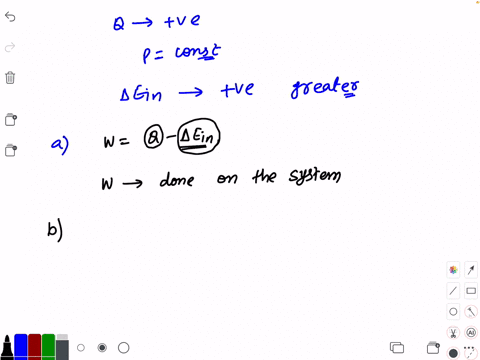 Q → +ve
P = const
ΔEin → +ve greater
a) W = Q - ΔEin
W → done on the system
b)